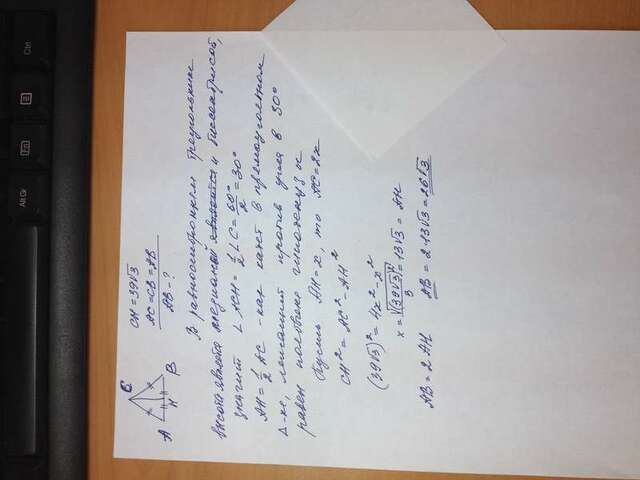 Alt Gr
Fn
Ctrl
C
A
H
B
CH = 39√3
AC = CB = AB
AB - ?
В равностороннем треугольнике
высота является медианой и биссектрисой,
значит ∠ACH = 1/2 ∠C = 60°/2 = 30°
AH = 1/2 AC - как катет в прямоугольном
Δ-ке, лежащий против угла в 30°
равен половине гипотенузы
Пусть AH = x, то AC = 2x
CH² = AC² - AH²
(39√3)² = 4x² - x²
x = √((39√3)²/3) = 13√3 = AH
AB = 2 AH AB = 2·13√3 = 26√3